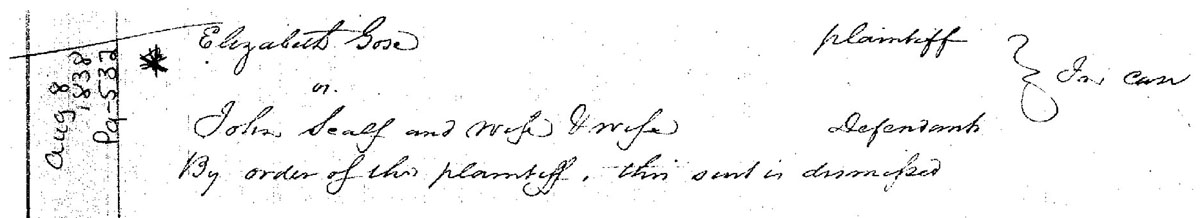 Aug 8
1838
Pg-532
* Elizabeth Gose plaintiff
vs.
In case
John Scalf and wife & wife Defendants
By order of the plaintiff, this suit is dismissed